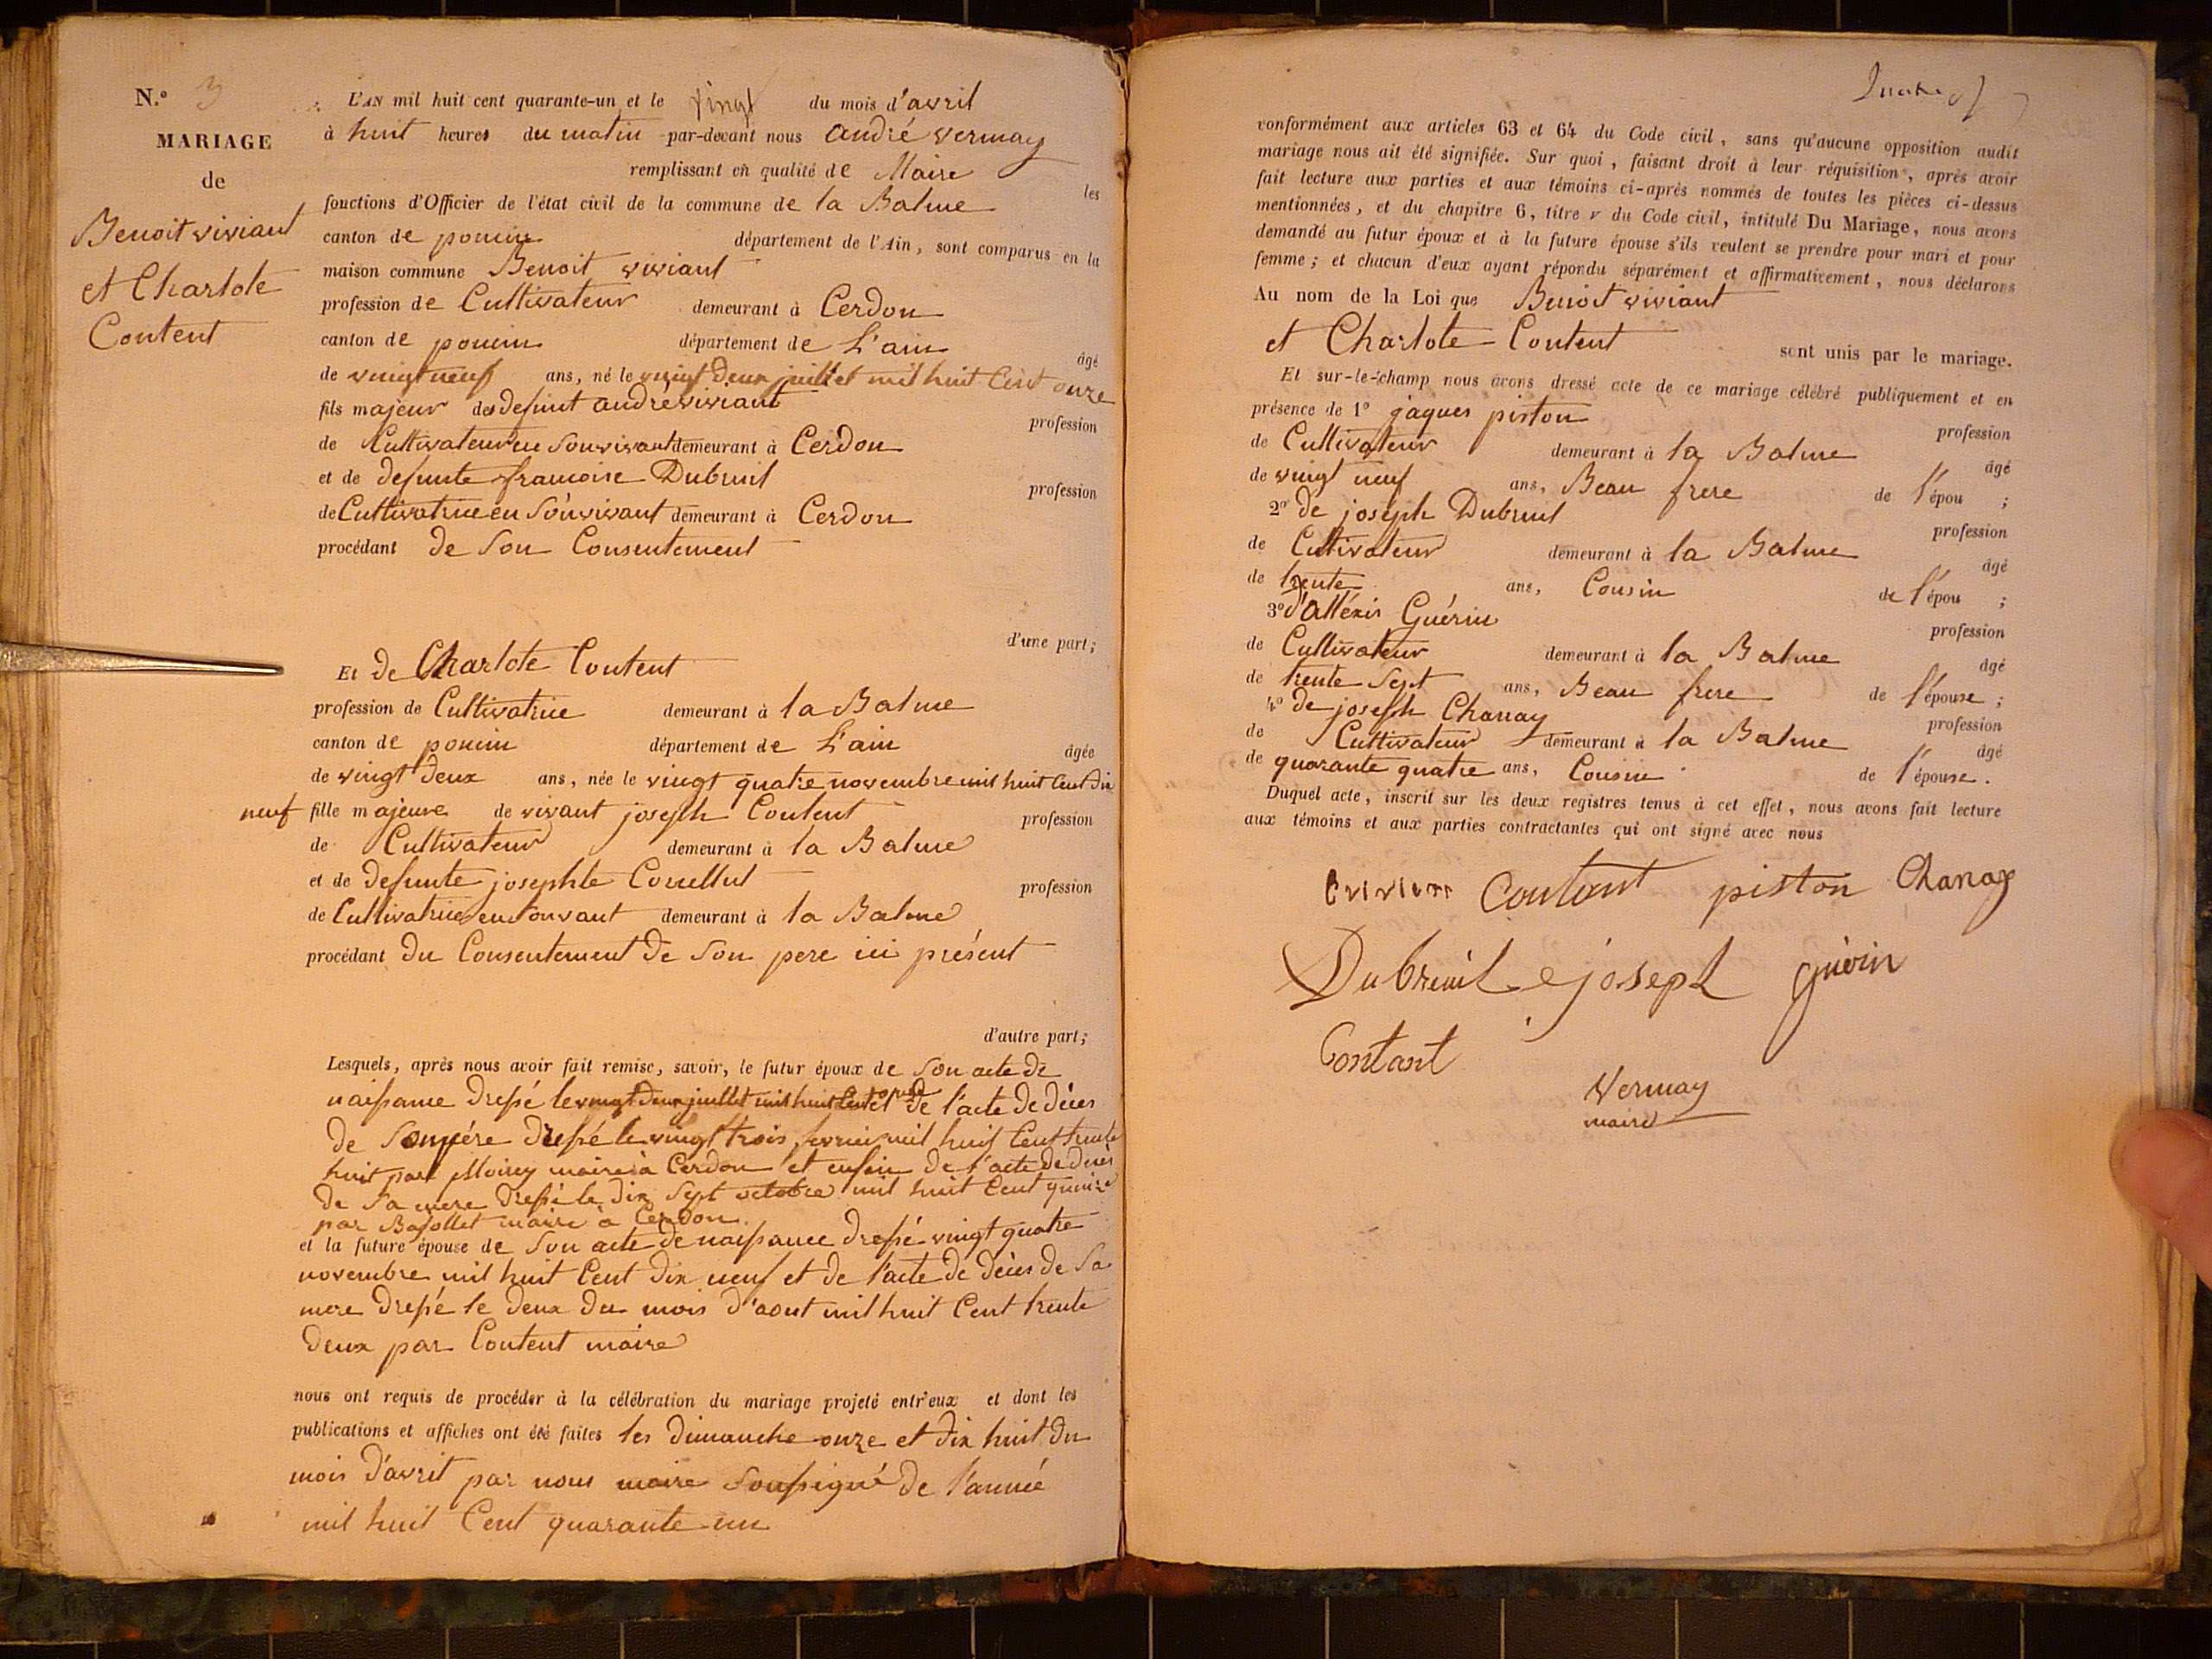 N.o 3
MARIAGE
de
Benoit viviant
et Charlote
Content
L'AN mil huit cent quarante-un et le vingt du mois d'avril
à huit heures du matin par-devant nous andré vermay
remplissant en qualité de Maire les
fonctions d'Officier de l'état civil de la commune de la Balme
canton de poncin département de l'Ain, sont comparus en la
maison commune Benoit viviant
profession de Cultivateur demeurant à Cerdon
canton de poncin département de L'ain âgé
de vingt neuf ans, né le vingt deux juillet mil huit Cent onze
fils majeur de defunt andre viviant profession
de Cultivateur en Souvivant demeurant à Cerdon
et de defunte francoise Dubruil profession
de Cultivatrice en Souvivant demeurant à Cerdon
procédant de Son Consentement
d'une part;
Et de Charlote Content
profession de Cultivatrice demeurant à la Balme
canton de poncin département de L'ain âgée
de vingt deux ans, née le vingt quatre novembre mil huit Cent dix
neuf fille majeure de vivant joseph Content profession
de Cultivateur demeurant à la Balme
et de defunte josephte profession
de Cultivatrice demeurant à la Balme
procédant du Consentement de Son pere ici présent
d'autre part;
Lesquels, après nous avoir fait remise, savoir, le futur époux de Son acte de
naissance dressé le vingt deux juillet mil huit Cent onze et de l'acte de déces
de Son pére dressé le vingt trois fevrier mil huit Cent trente
huit par maire à Cerdon et enfin de l'acte de déces
de Sa mere dressé le dix Sept octobre mil huit Cent quinze
par maire à Cerdon.
et la future épouse de Son acte de naissance dressé vingt quatre
novembre mil huit Cent dix neuf et de l'acte de déces de Sa
mere dressé le deux du mois d'aout mil huit Cent trente
deux par Content maire
nous ont requis de procéder à la célébration du mariage projeté entr'eux et dont les
publications et affiches ont été faites les dimanche onze et dix huit du
mois d'avril par nous maire Soussigné de l'année
mil huit Cent quarante un
conformément aux articles 63 et 64 du Code civil, sans qu'aucune opposition audit
mariage nous ait été signifiée. Sur quoi, faisant droit à leur réquisition, après avoir
fait lecture aux parties et aux témoins ci-après nommés de toutes les pièces ci-dessus
mentionnées, et du chapitre 6, titre v du Code civil, intitulé Du Mariage, nous avons
demandé au futur époux et à la future épouse s'ils veulent se prendre pour mari et pour
femme; et chacun d'eux ayant répondu séparément et affirmativement, nous déclarons
Au nom de la Loi que Benoit viviant
et Charlote Content sont unis par le mariage.
Et sur-le-champ nous avons dressé acte de ce mariage célébré publiquement et en
présence de 1o jaques piston profession
de Cultivateur demeurant à la Balme âgé
de vingt neuf ans, Beau frere de l'épou ;
2o de joseph Dubruil profession
de Cultivateur demeurant à la Balme âgé
de trente ans, Cousin de l'épou ;
3o d'alléxis Guérin profession
de Cultivateur demeurant à la Balme âgé
de trente Sept ans, Beau frere de l'épouse ;
4o de joseph Chanay profession
de Cultivateur demeurant à la Balme âgé
de quarante quatre ans, Cousin de l'épouse.
Duquel acte, inscrit sur les deux registres tenus à cet effet, nous avons fait lecture
aux témoins et aux parties contractantes qui ont signé avec nous
Contant piston Chanay
Dubreuil joseph guérin
Contant
Vermay
maire